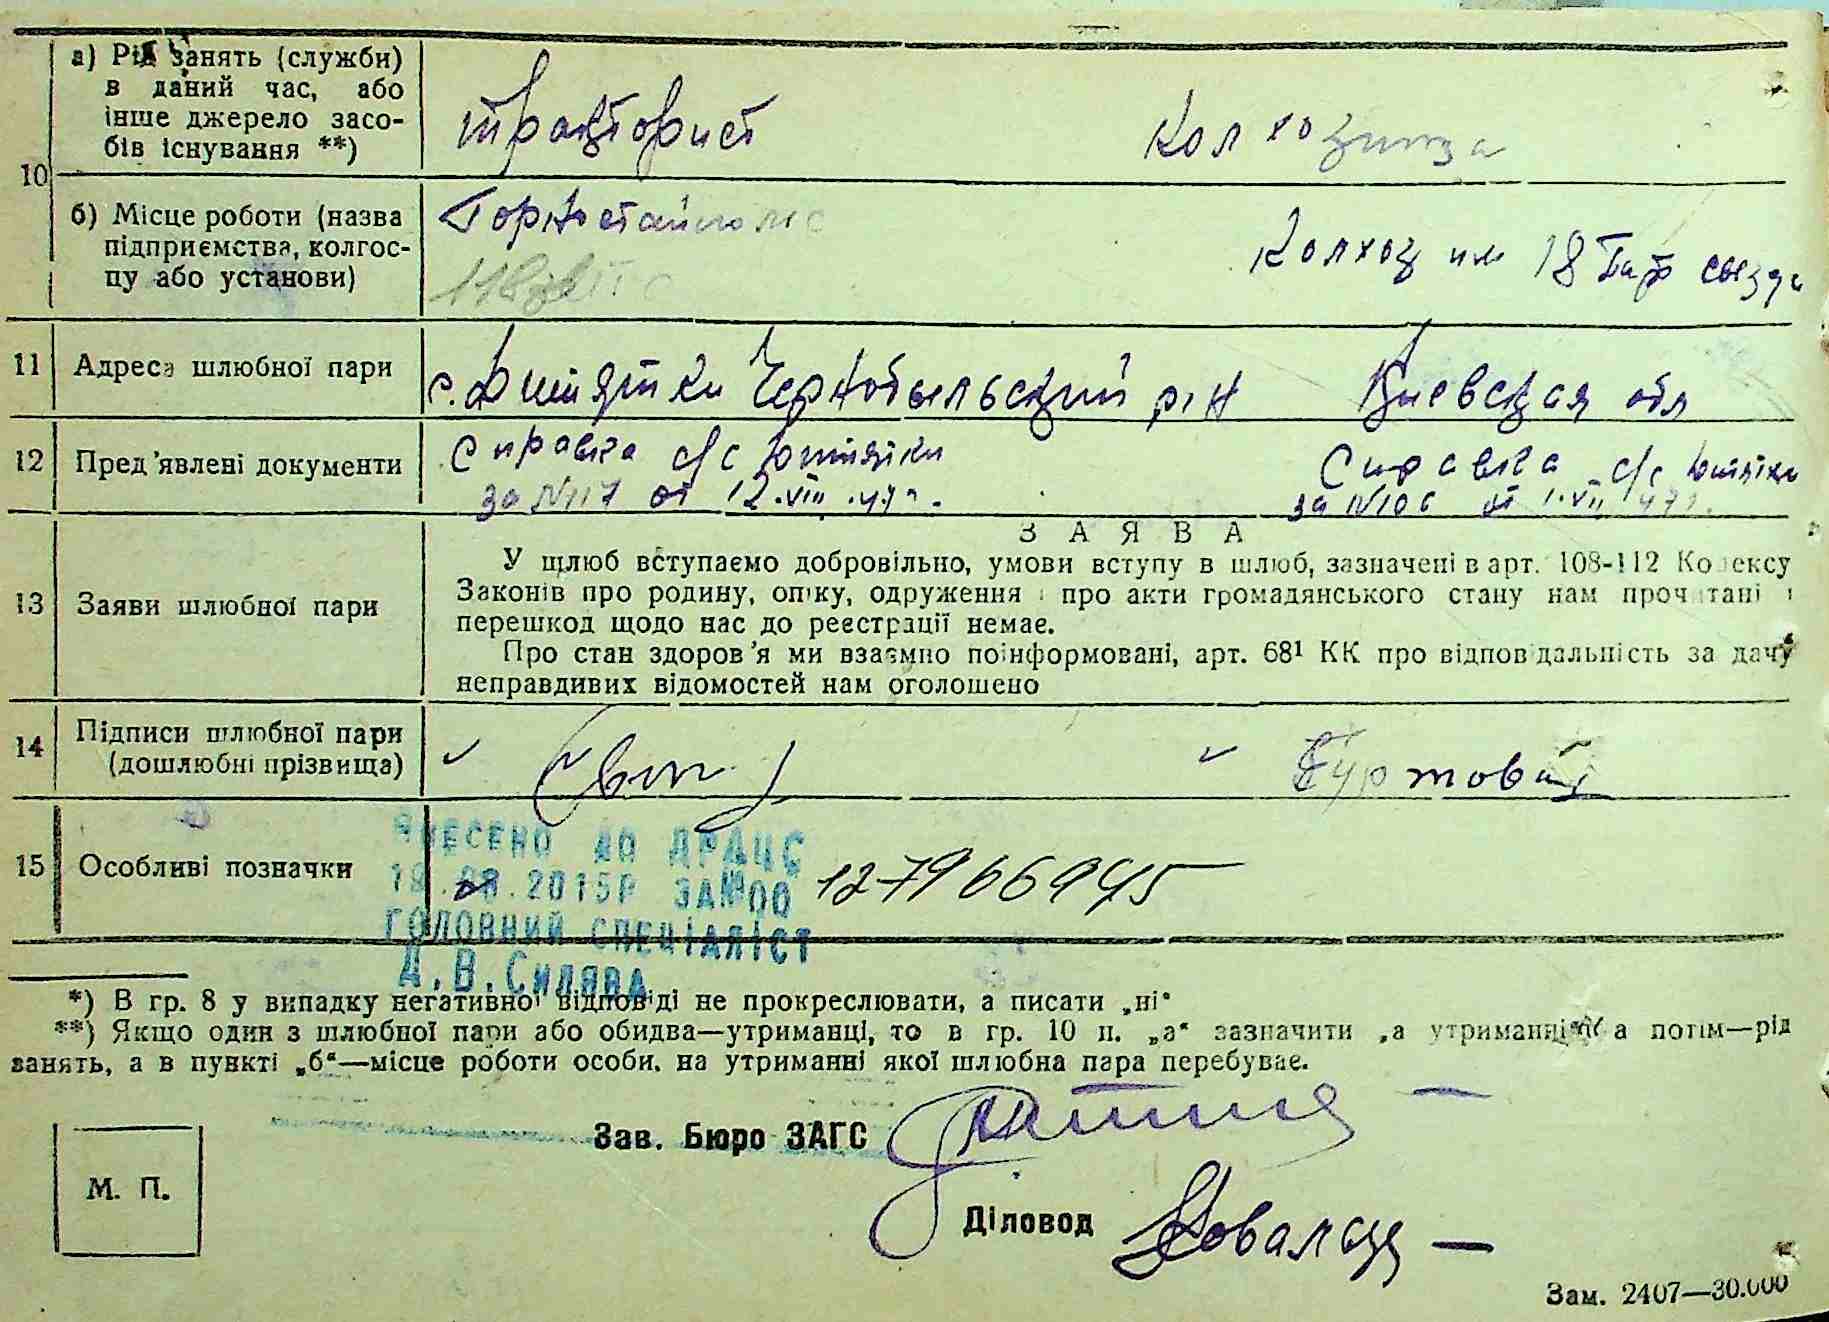 а) Рід занять (служби)
в даний час, або
інше джерело засо-
бів існування **)
тракторист
колхозница
10
б) Місце роботи (назва
підприємства, колгос-
пу або установи)
Горностайполс
Колхоз им 18 Пар сьезда
11 Адреса шлюбної пари
с. Дитятки Чернобыльский р-н Киевская обл
12 Пред'явлені документи
Справка с/с Дитятки
за №117 от 12.VIII.47г.
Справка с/с
за №106 от 1.VII 47г.
З А Я В А
13 Заяви шлюбної пари
У щлюб вступаємо добровільно, умови вступу в шлюб, зазначені в арт. 108-112 Кодексу
Законів про родину, опіку, одруження і про акти громадянського стану нам прочитані і
перешкод щодо нас до реєстрації немає.
Про стан здоров'я ми взаємно поінформовані, арт. 68¹ КК про відповідальність за дачу
неправдивих відомостей нам оголошено
14 Підписи шлюбної пари
(дошлюбні прізвища)
Буртовая
15 Особливі позначки
ВНЕСЕНО ДО ДРАЦС
19.08.2015Р ЗА№00 127966945
ГОЛОВНИЙ СПЕЦІАЛІСТ
Д.В.СИЛЯВА
*) В гр. 8 у випадку негативної відповіді не прокреслювати, а писати „ні“
**) Якщо один з шлюбної пари або обидва—утриманці, то в гр. 10 п. „а“ зазначити „а утриманні“ а потім—рід
занять, а в пункті „б“—місце роботи особи, на утриманні якої шлюбна пара перебуває.
Зав. Бюро ЗАГС
М. П.
Діловод
Зам. 2407—30.000